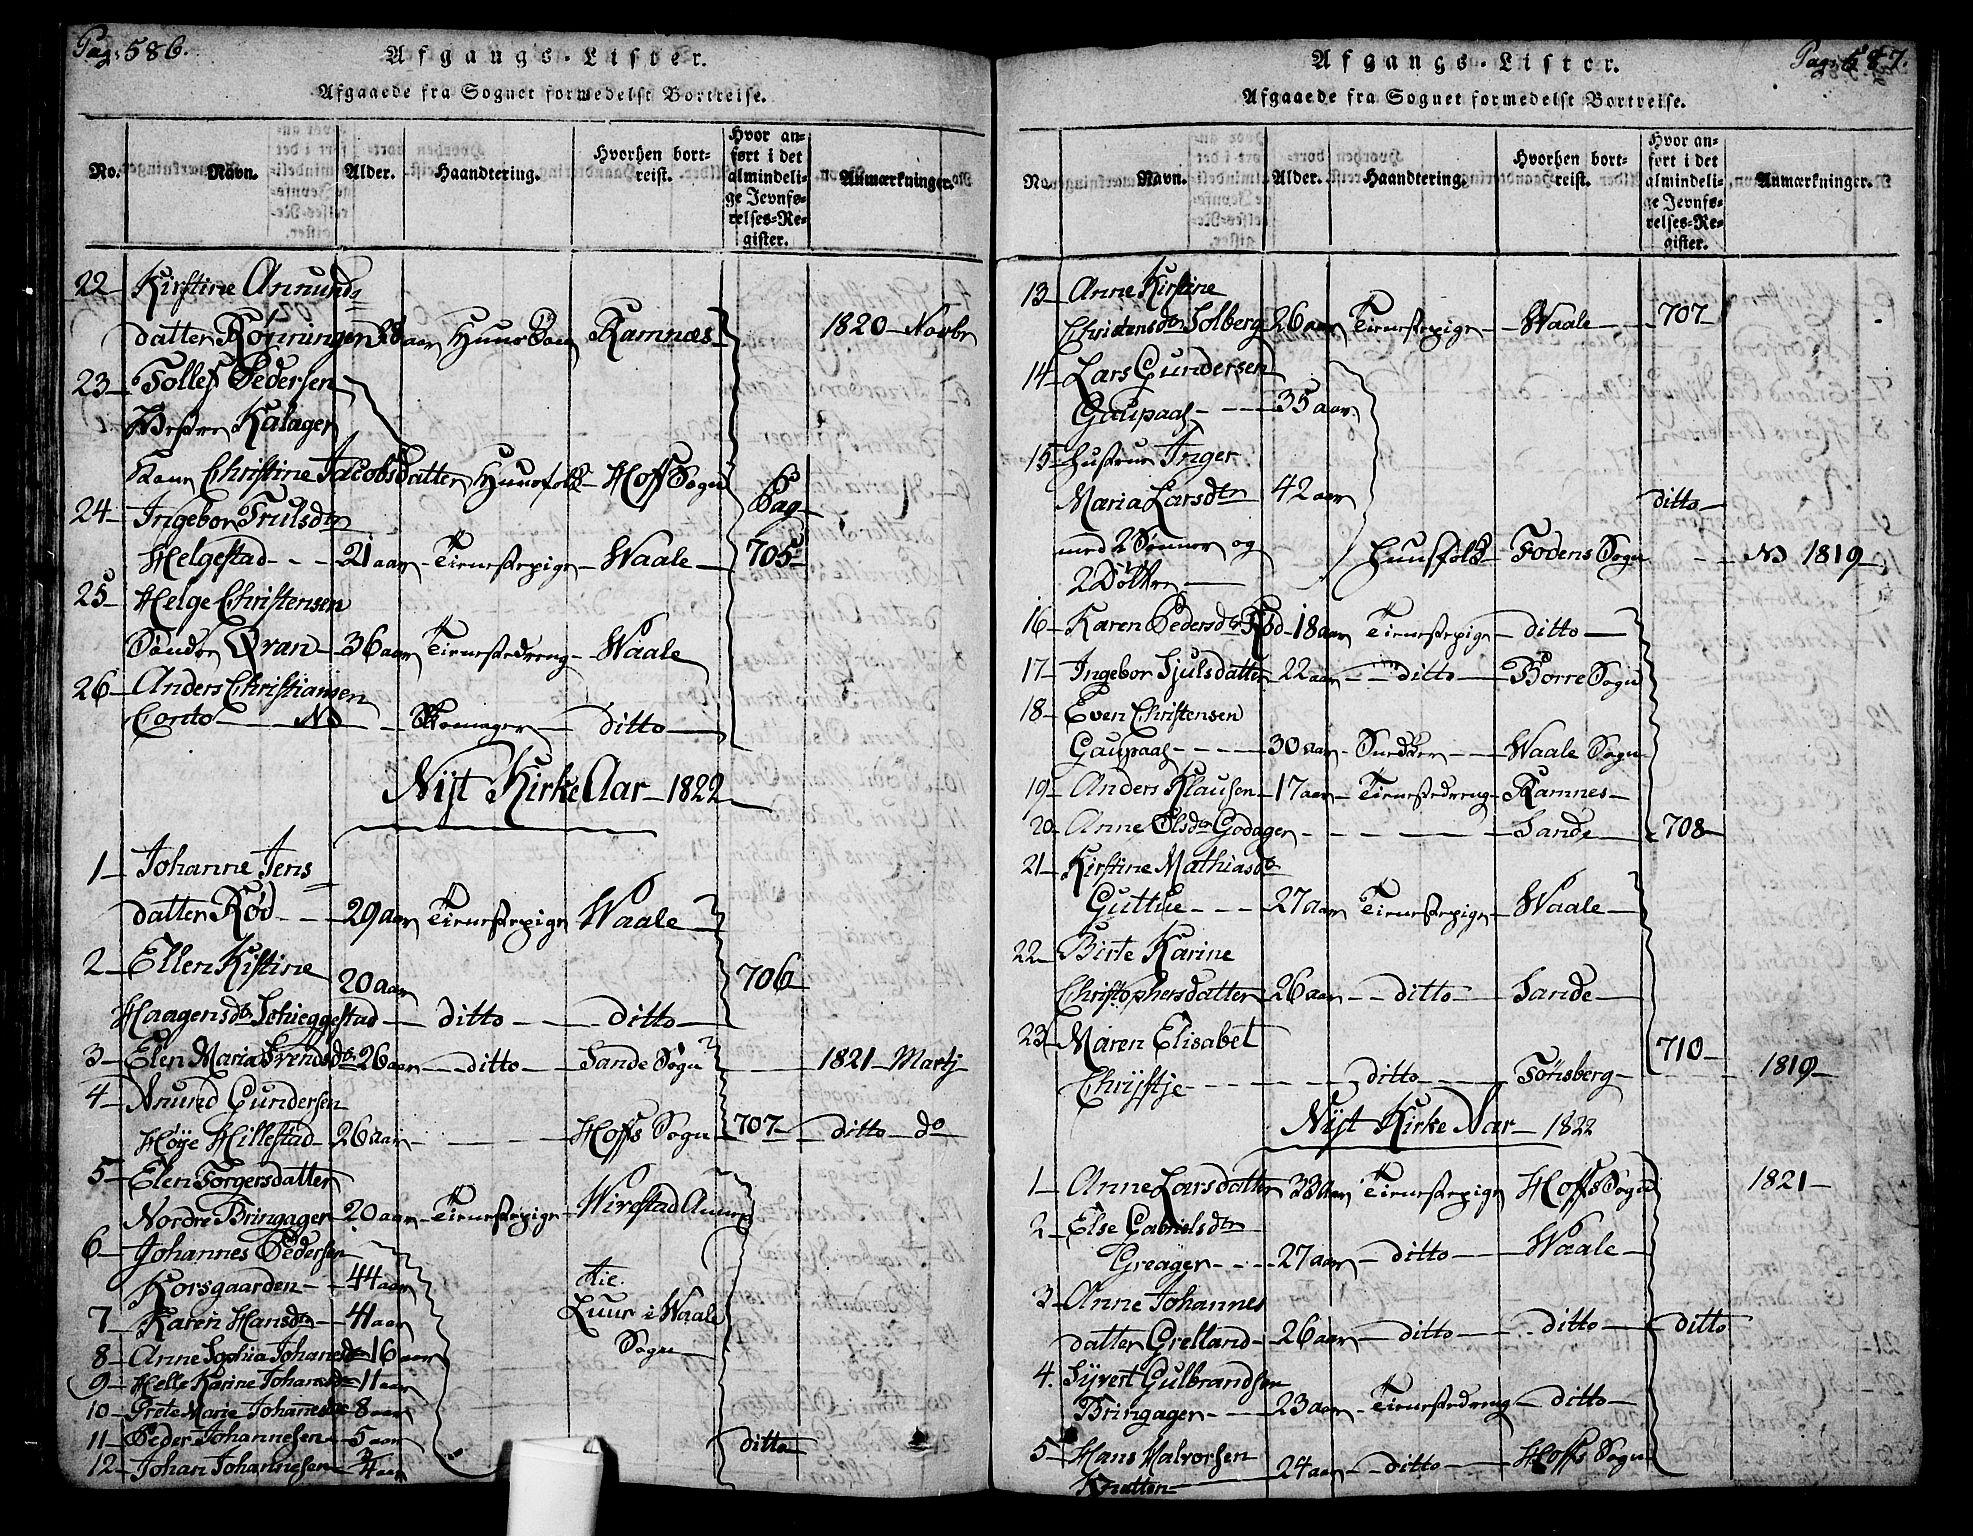 Pag: 586.
Afgangs-Lister.
Afgaaede fra Sognet formedelst Bortreise.
No. Navn. Alder. Haandtering. Hvorhen bortreist. Hvor anført i det almindelige Jevnførelses-Register. Anmærkninger.
22 Kirstine Annunds=
datter Rønningen 28 aar Huus Kamnæs 1820 Novbr
23 Tollef Pedersen
Westre Kalager
Kone Christine Jacobsdatter Huusfolk Hoff Sogn
24 Ingebor Trulsdtr Pag
Helgestad 21 aar Tienestepige Waale 705
25 Helge Christensen
Søndre Qvan 36 aar Tienestedreng Waale
26 Anders Christiansen
Conto Skomager ditto
Nyt Kirke Aar 1822
1 Johanne Jens=
datter Rød 29 aar Tienestepige Waale
2 Ellen Kistine 20 aar 706
Haagensdr Schieggestad ditto ditto
3 Elen Maria Svendsdr 26 aar ditto Sande Sogn 1821 Martj
4 Anund Gundersen
Høye Hillestad 26 aar Hoffs Sogn 707 ditto do
5 Elen Torgersdatter
Nordre Bringager 20 aar Tienestepige
6 Johannes Pedersen
Korsgaarden 44 aar
7 Karen Hansdtr 41 aar Luur i Waale
Sogn
8 Anne Sophia Johansdr 16 aar
9 Helle Karine Johansdr 11 aar
10 Grete Marie Johannesdr 8 aar
11 Peder Johannesen 5 aar ditto
12 Johan Johannesen
Pag: 587.
Afgangs-Lister.
Afgaaede fra Sognet formedelst Bortreise.
No. Navn. Alder. Haandtering. Hvorhen bortreist. Hvor anført i det almindelige Jevnførelses-Register. Anmærkninger.
13 Anne Kirstine
Christensdtr Solberg 26 aar Tienestepige Waale 707
14 Lars Gundersen
Gaupaas 35 aar
15 Hustrue Inger
Maria Larsdtr 42 aar ditto
med 2 Sønner og Huusfolk Fodens Sogn 1819
2 Døttre
16 Karen Pedersdtr Rød 18 aar Tienestepige ditto
17 Ingebor Sjulsdatter 22 aar ditto Borre Sogn
18 Even Christensen
Gaupaas 30 aar Snedker Waale Sogn
19 Anders Klausen 17 aar Tienestedreng Ramnes
20 Anne Olsdtr Godager Sande 708
21 Kirstine Mathiasdr
Guttue 27 aar Tienestepige Waale
22 Birte Karine
Christophersdatter 26 aar ditto Sande
23 Maren Elisabet 710
Chrijstje ditto Tønsberg 1819
Nyt Kirke Aar 1822
1 Anne Larsdatter 33 aar Tienestepige Hoffs Sogn 1821
2 Else Gabrielsdtr
Greager 27 aar ditto Waale
3 Anne Johannes
datter Grelland 26 aar ditto ditto ditto
4. Syvert Gulbrandsen
Bringager 23 aar Tienestedreng ditto
5 Hans Halvorsen
Knatten 24 aar ditto Hoffs Sogn